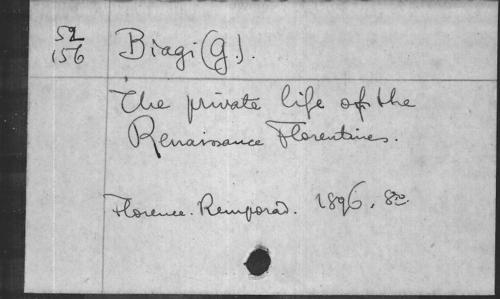 52
156
Biagi (G.).
The private life of the
Renaissance Florentines.
Florence. Bemporad. 1896. 8º